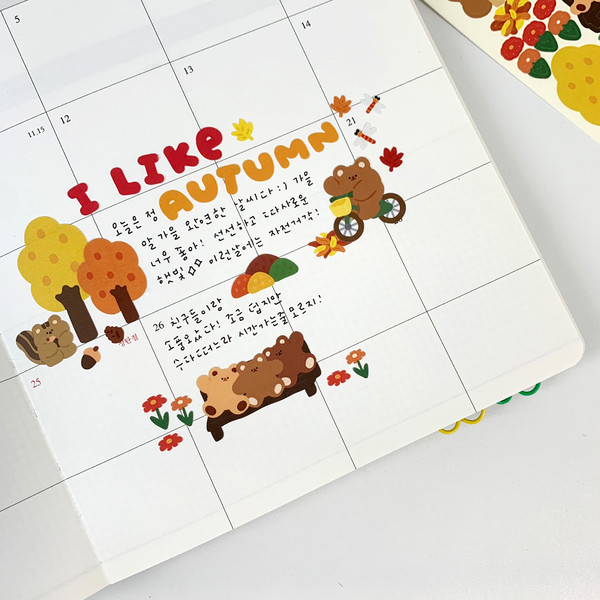 5
14
13
11.15
12
I LIKE
21
AUTUMN
오늘은 정
말 가을 완연한 날씨다 :) 가을
너무 좋아! 선선하고 따사로운
햇빛 이런날에는 자전거가!
26 친구들이랑
소풍왔싸다! 조금 덥지만
수다떠느라 시간가는줄모르지!
성탄절
25